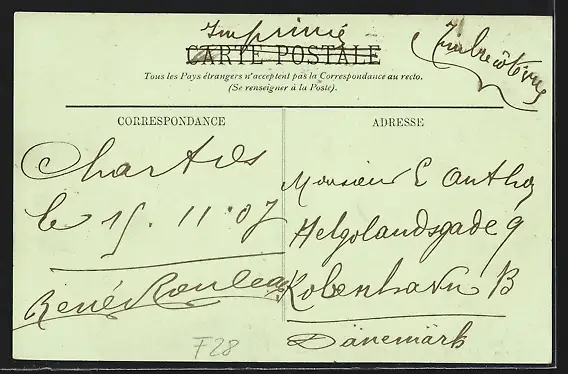 Imprimé
CARTE POSTALE
Timbre côté vue
Tous les Pays étrangers n'acceptent pas la Correspondance au recto.
(Se renseigner à la Poste).
CORRESPONDANCE
Chartres
le 15. 11. 07
René Rouleau
ADRESSE
Monsieur E Anthoj
Helgolandsgade 9
Kobenhavn B
Dänemärk
F28